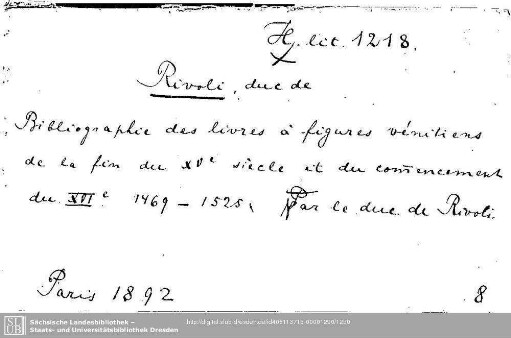 H. lit. 1218.
Rivoli, duc de
Bibliographie des livres à figures vénitiens
de la fin du XVe siècle et du com̅encement
du XVIe 1469 – 1525. Par le duc de Rivoli.
Paris 1892
8
SLUB
Sächsische Landesbibliothek –
Staats- und Universitätsbibliothek Dresden